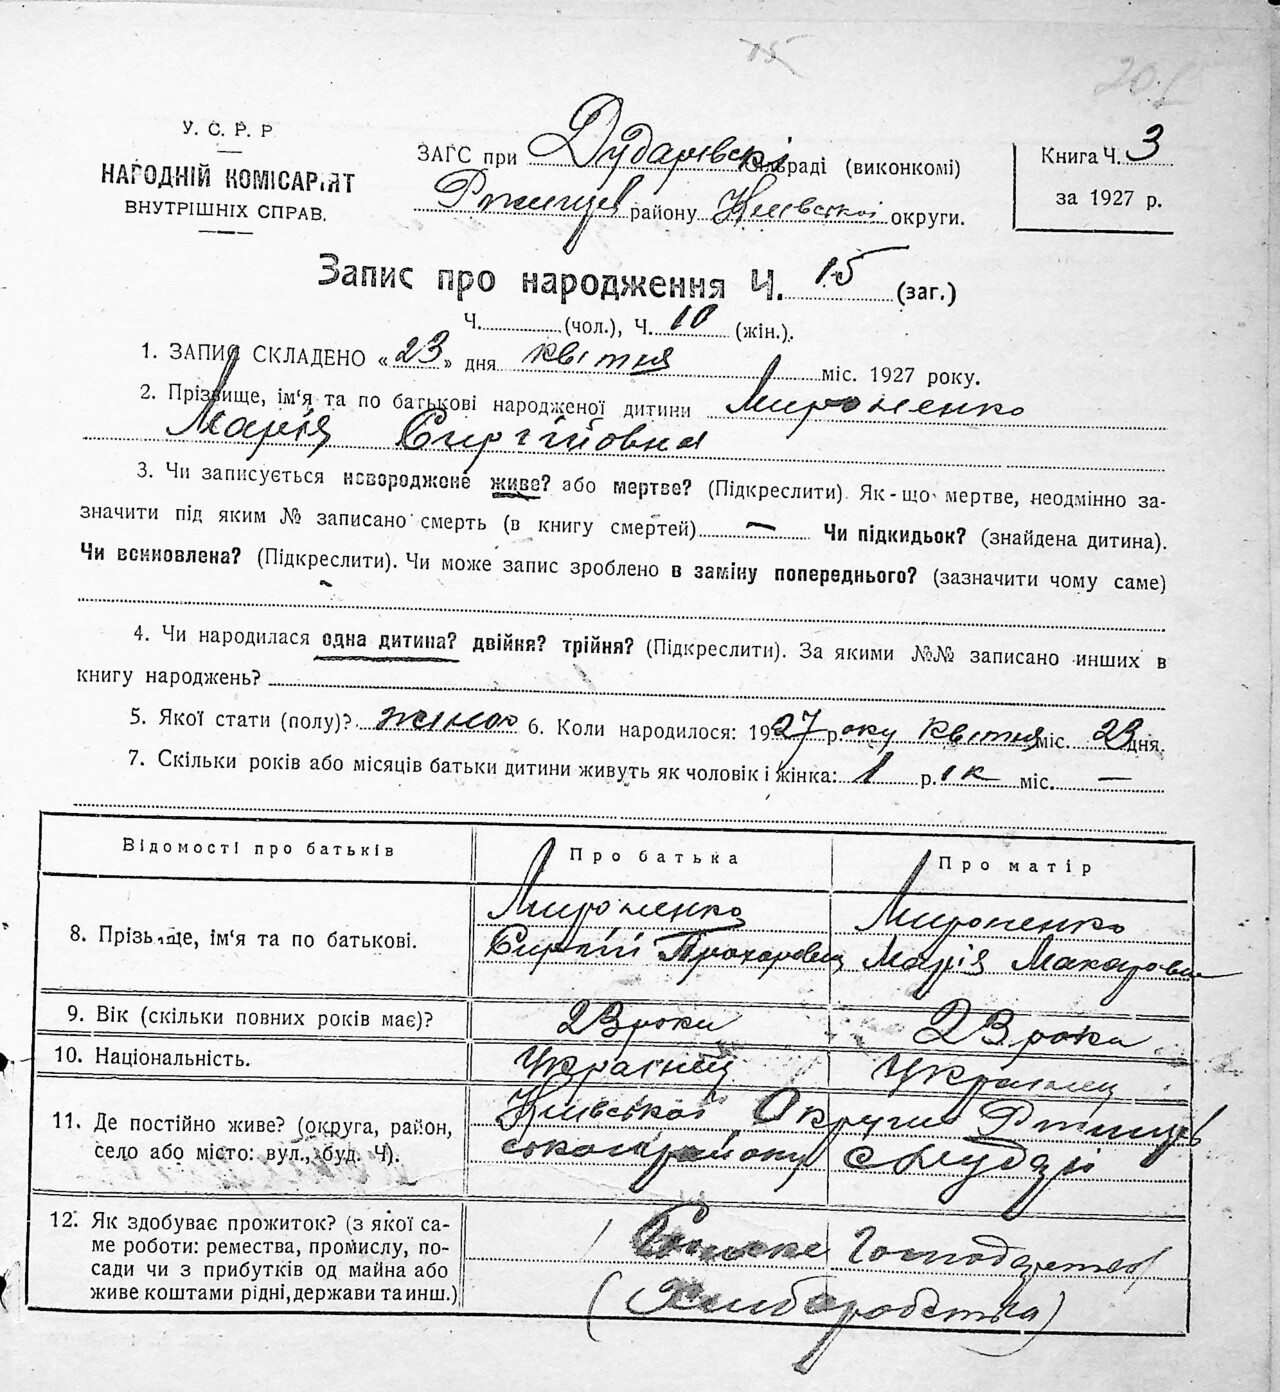 75
У. С. Р. Р
НАРОДНІЙ КОМІСАРІЯТ
ВНУТРІШНІХ СПРАВ.
ЗАГС при Дударівскі сільраді (виконкомі)
Ржищів району Київської округи.
Книга Ч. 3
за 1927 р.
Запис про народження Ч. 15 (заг.)
Ч. (чол.), Ч. 10 (жін.).
1. ЗАПИС СКЛАДЕНО «23» дня квітня міс. 1927 року.
2. Прізвище, ім‘я та по батькові народженої дитини Мироненко
Марія Сиргійовна
3. Чи записується новороджене живе? або мертве? (Підкреслити). Як-що мертве, неодмінно за-
значити під яким № записано смерть (в книгу смертей) — Чи підкидьок? (знайдена дитина).
Чи всиновлена? (Підкреслити). Чи може запис зроблено в заміну попереднього? (зазначити чому саме)
4. Чи народилася одна дитина? двійня? трійня? (Підкреслити). За якими №№ записано инших в
книгу народжень?
5. Якої стати (полу)? жіною 6. Коли народилося: 1927 року квітня міс. 23 дня.
7. Скільки років або місяців батьки дитини живуть як чоловік і жінка: 1 р. ік міс. —
Відомості про батьків Про батька Про матір
8. Прізьвище, ім‘я та по батькові. Мироненко Мироненко
Сиргій Прохоровиц Марія Макаровна
9. Вік (скільки повних років має)? 23 роки 23 роки
10. Національність. Українец Українец
11. Де постійно живе? (округа, район, Київської Округи Ржищев
село або місто: вул., буд. Ч). ського району
12. Як здобуває прожиток? (з якої са-
ме роботи: ремества, промислу, по- Сільске Господарство
сади чи з прибутків од майна або
живе коштами рідні, держави та инш.) (Хлиборобства)